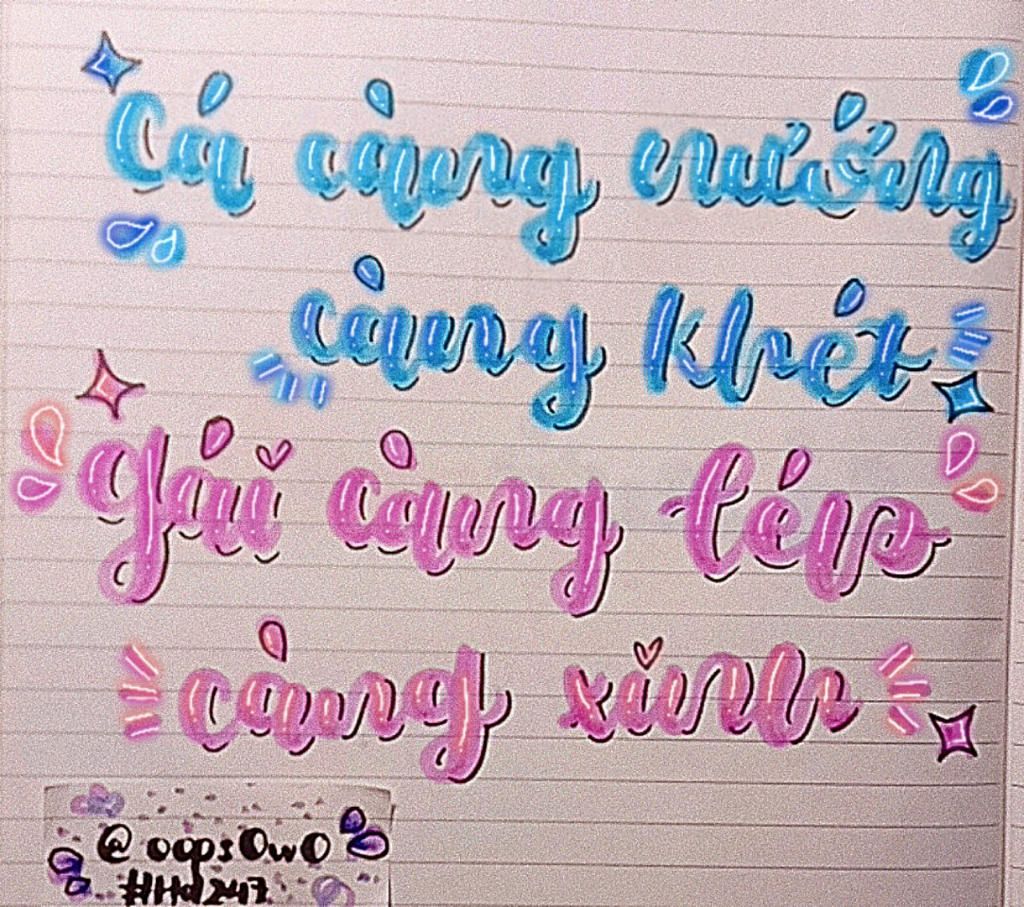 Cá càng nướng
càng khét
gái càng lép
càng xinh
@oopsOwO
#Hd247